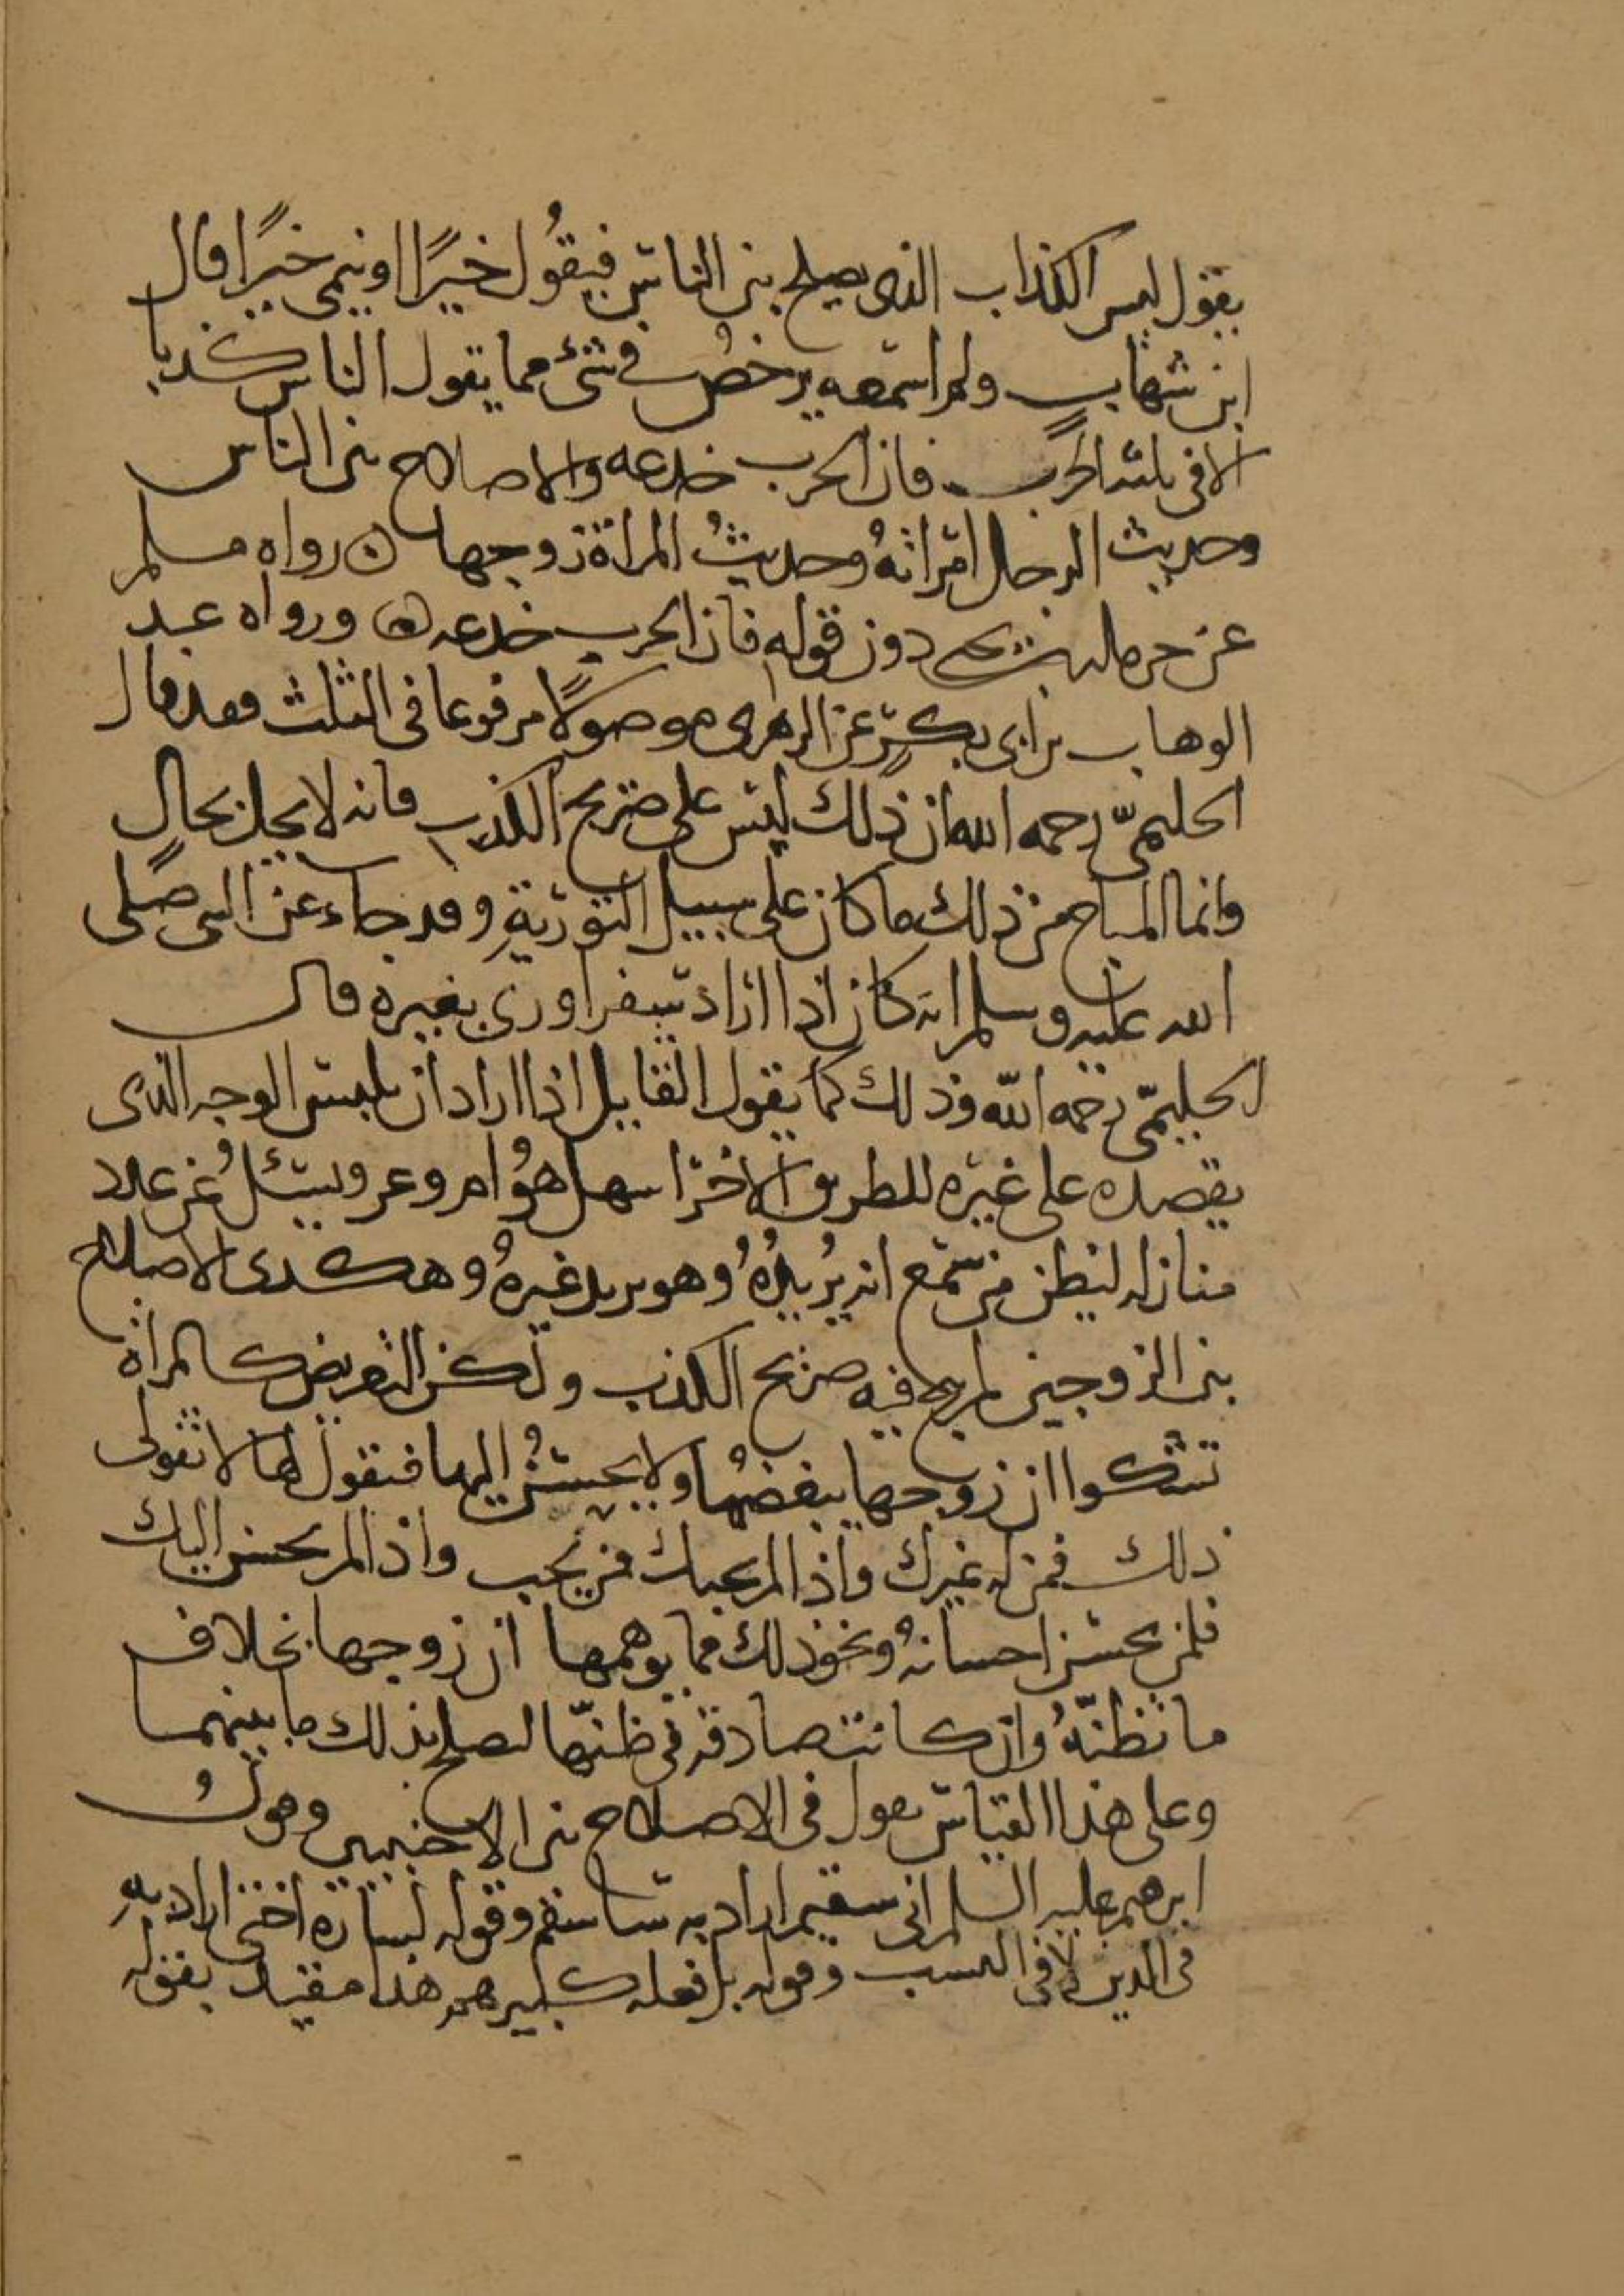 يقول ليس الكذاب الذى يصلح بين الناس فيقُول خيرًا او ينمى خيرًا قال
ابن شهاب ولم اسمعه يرخص فى شىء مما يقول الناس كذبا
الا فى ثلث الحرب فان الحرب خدعه والاصلاح بين الناس
وحديث الرجل امراتهُ وحديثُ المراة زوجها ه رواه مسلم
عن حرمله بن يحيى دون قوله فان الحرب خدعه ه ورواه عبد
الوهاب بن ابى بكرٍ عن الزهرى موصولًا مرفوعا فى الثلث وقد قال
الحليمىّ رحمه الله ان ذلك ليس على صريح الكذب فانه لا يحل بحالٍ
وانما المباح من ذلك ما كان على سبيل التوريةِ وقد جاء عن النبى صلى
الله عليه وسلم انه كان اذا اراد سفرا ورى بغيره قال
الحليمىّ رحمه الله وذلك كما يقول القايل اذا اراد ان يلبس الوجه الذى
يقصده على غيره للطريق الاخر اسهل هوُ ام وعر ويسئلُ عن عدد
منازله ليظن من سمع انه يُريدُهُ وهو يريد غيرهُ وهكدى الاصلاح
بين الزوجين لم يبح فيه صريح الكذب ولكن التعريض كالمراة
تشكوا ان زوجها يبغضُها ولا يحسنُ اليها فيقول لها لا تقولى
ذلك فمن له غيرك واذا لم يحبك فمن يحب واذا لم يحسن اليك
فلمن يحسن احسانهُ ونحو ذلك مما يوهمها ان زوجها بخلاف
ما تظنّهُ وان كانت صادقه فى ظنّها ليصلح بذلك ما بينهما
وعلى هذا القياس يقول فى الاصلاح بين الاجنبيين وقولُ
ابرهيم عليه السلم انى سقيم اراد به ساسقم وقوله لسارة اختى اراد بهِ
فى الدين لا فى النسب وقوله بل فعله كبيرهم هذا مقيد بقوله